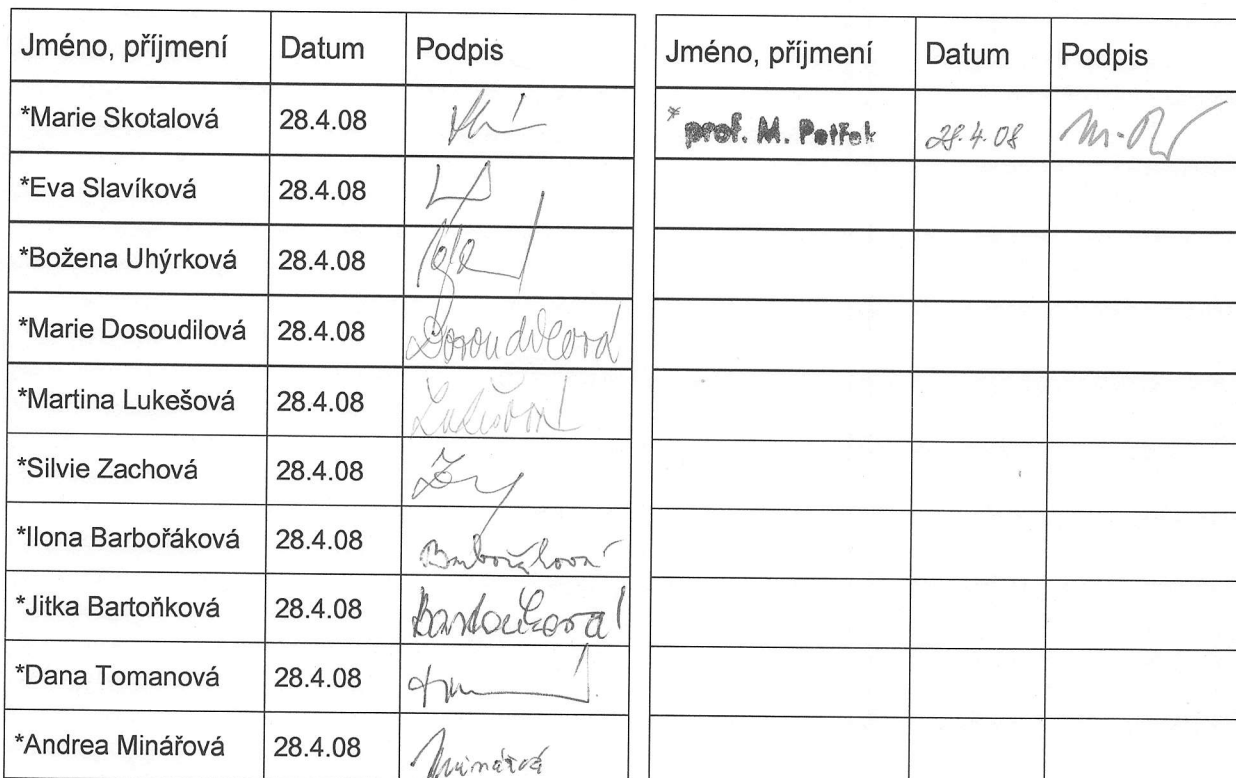 Jméno, příjmení Datum Podpis
*Marie Skotalová 28.4.08
*Eva Slavíková 28.4.08
*Božena Uhýrková 28.4.08
*Marie Dosoudilová 28.4.08 Dosoudilová
*Martina Lukešová 28.4.08 Lukešová
*Silvie Zachová 28.4.08
*Ilona Barbořáková 28.4.08 Barbořáková
*Jitka Bartoňková 28.4.08 Bartoňková
*Dana Tomanová 28.4.08
*Andrea Minářová 28.4.08 Minářová
Jméno, příjmení Datum Podpis
* prof. M. Petřek 28.4.08